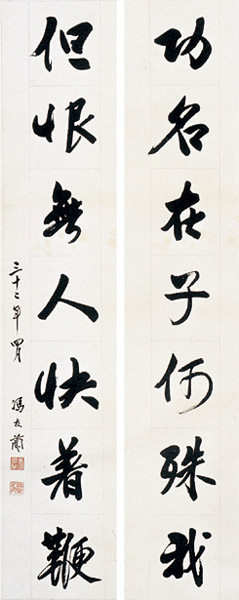 功名在子何殊我
但恨無人快着鞭
三十二年四月
馮友蘭